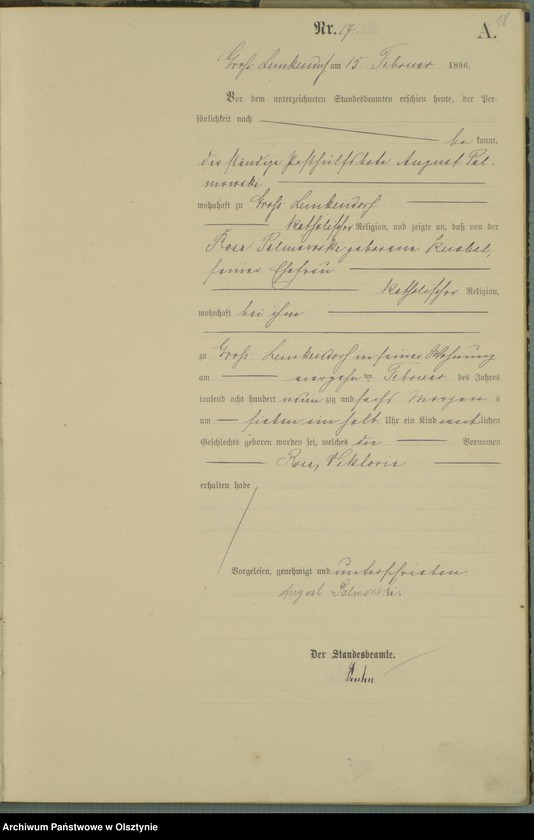 18
Nr. 17
A.
Groß Lemkendorf am 15 Februar 1896.
Vor dem unterzeichneten Standesbeamten erschien heute, der Per-
sönlichkeit nach
be kannt,
der ständige Posthülfsbote August Pal-
mowski
wohnhaft zu Groß Lemkendorf
katholischer Religion, und zeigte an, daß von der
Rosa Palmowski geborene Knobel,
seiner Ehefrau
katholischer Religion,
wohnhaft bei ihm
zu Groß Lemkendorf in seiner Wohnung
am vierzehnten Februar des Jahres
tausend acht hundert neunzig und sechs Morgens
um sieben ein halb Uhr ein Kind weiblichen
Geschlechts geboren worden sei, welches die Vornamen
Rosa, Viktoria
erhalten habe
Vorgelesen, genehmigt und unterschrieben
August Palmowski.
Der Standesbeamte.
Archiwum Państwowe w Olsztynie